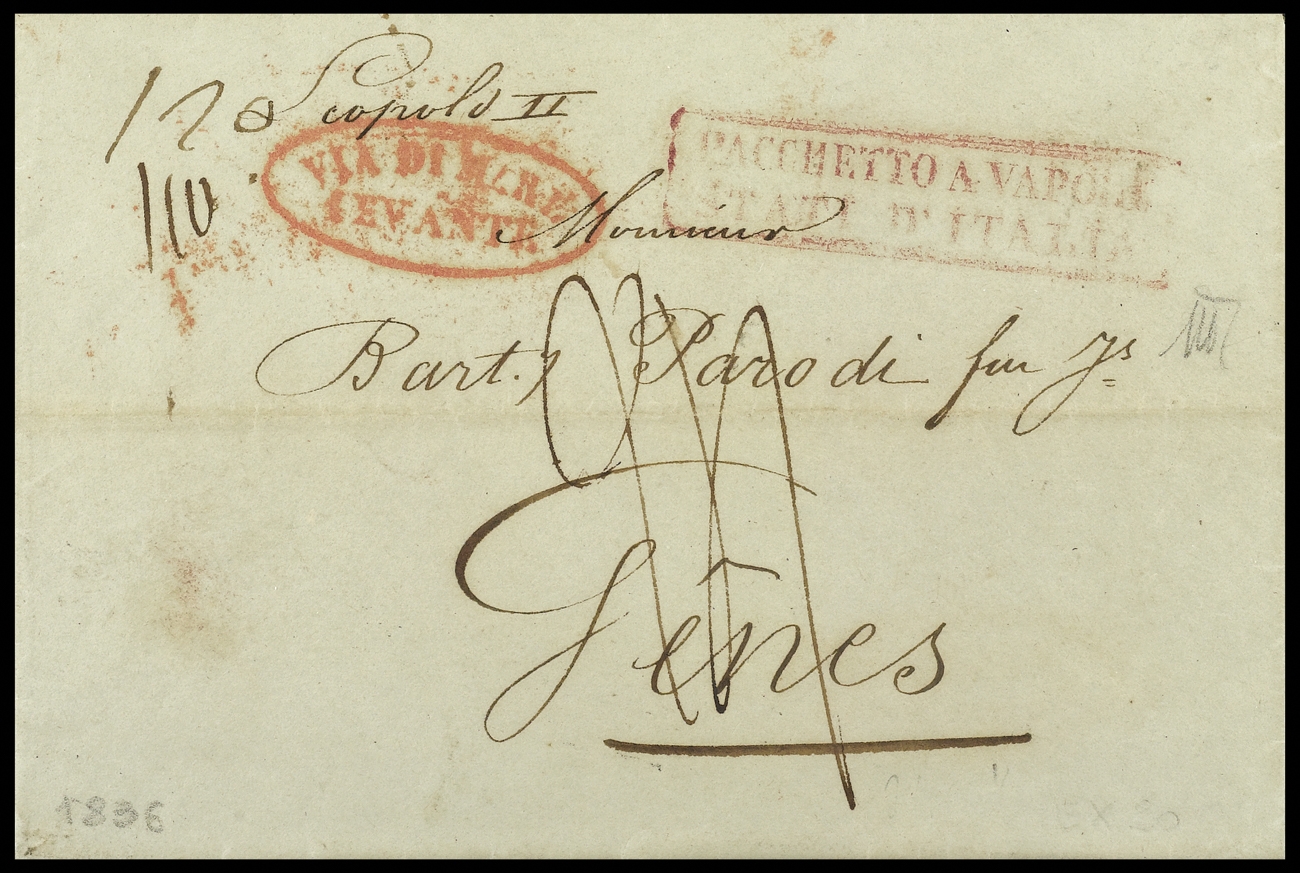 Leopold II
VIA DI MARE
LEVANTE
PACCHETTO A VAPORE
STATI D'ITALIA
110
Monsieur
Bart. Parodi fu Js
Gênes
1836
EX 30